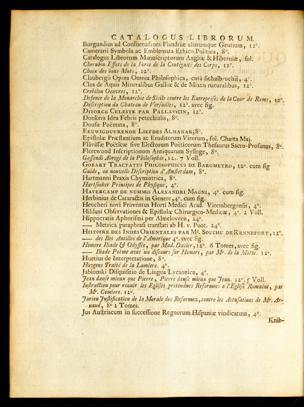 CATALOGUS LIBRORUM.
Burgundias ad Confœderationes Flandriæ aliarumque Gentium, 12°.
Camerarii Symbola ac Emblemata Ethico Politica, 8°.
Catalogus Librorum Manuscriptorum Angliæ & Hiberniæ, fol.
Cherubin Effets de la Force de la Contiguité des Corps, 12°.
Choix des bons Mots, 12°.
Claubergii Opera Omnia Philosophica, curâ Schalbruchii, 4°.
Clos de Aquis Mineralibus Galliæ & de Mixtis naturalibus, 12°.
Crebillon Oeuvres, 12°.
Defense de la Monarchie de Sicile contre les Entreprises de la Cour de Rome, 12°.
Description du Chateau de Versailles, 12°. avec fig.
Divorce Celeste par Pallavicin, 12°.
Donkers Idea Febris petechialis, 8°.
Dousæ Poëmata, 8°.
Eeuwigduurende Liefdes Almanak, 8°.
Epistolæ Præstantium ac Eruditorum Virorum, fol. Charta Maj.
Flavissæ Poëticæ sive Electorum Poëticorum Thesaurus Sacro-Profanus, 8°.
Fleetwood Inscriptionum Antiquarum Sylloge, 8°.
Gassendi Abregé de la Philosophie, 12. 7 Voll
Gobart Tractatus Philosophicus de Barometro, 12°. cum fig
Guide, ou nouvelle Description d'Amsterdam, 8°.
Hartmanni Praxis Chymiatrica, 8°.
Hartsoeker Principes de Physique, 4°.
Havercamp de Nummis Alexandri Magni, 4°. cum fig.
Herbinius de Cataractis in Genere, 4°. cum fig.
Heucheri novi Proventus Horti Medici Acad. Vitembergensis, 4°.
Hildani Observationes & Epistolæ Chirurgico-Medicæ, 4°. 2 Voll.
Hippocratis Aphorismi per Almeloveën, 24°.
— Metrica paraphrasi translati ab H. v. Poot. 24°.
Histoire des Indes Orientales par Mr. Souchu de Rennefort, 12°.
— des Iles Antilles de l'Amerique 4°. avec fig.
Homere Iliade & Odyssée, par Mad. Dacier, 12°. 6 Tomes, avec fig.
— Iliade Poëme avec un discours sur Homere, par Mr. de la Motte. 12°.
Huetius de Interpretatione, 8°.
Huygens Traité de la Lumiere. 4°.
Jablonski Disquisitio de Lingua Lycaonica, 4°.
Jean danse mieux que Pierre, Pierre danse mieux que Jean. 12°. 5 Voll.
Instruction pour reunir les Eglises pretendues Reformées à l'Eglise Romaine, par
Mr. Camiere. 12°.
Jurieu Justification de la Morale des Reformez, contre les Accusations de Mr. Ar-
naud, 8° 2 Tomes.
Jus Austriacum in successione Regnorum Hispaniæ vindicatum, 4°.
Knib-